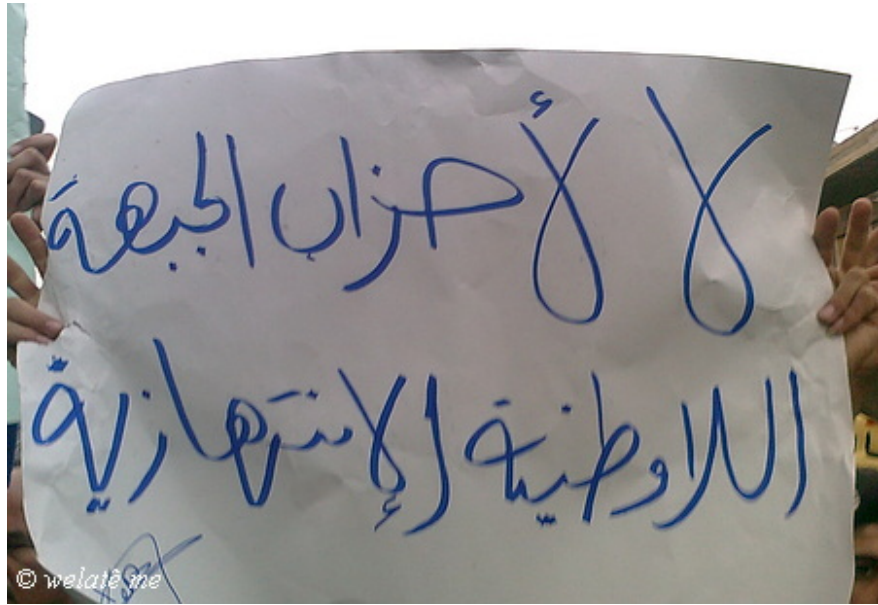 لا لأحزاب الجبهة
اللاوطنية الإنتهازية
© welatê me